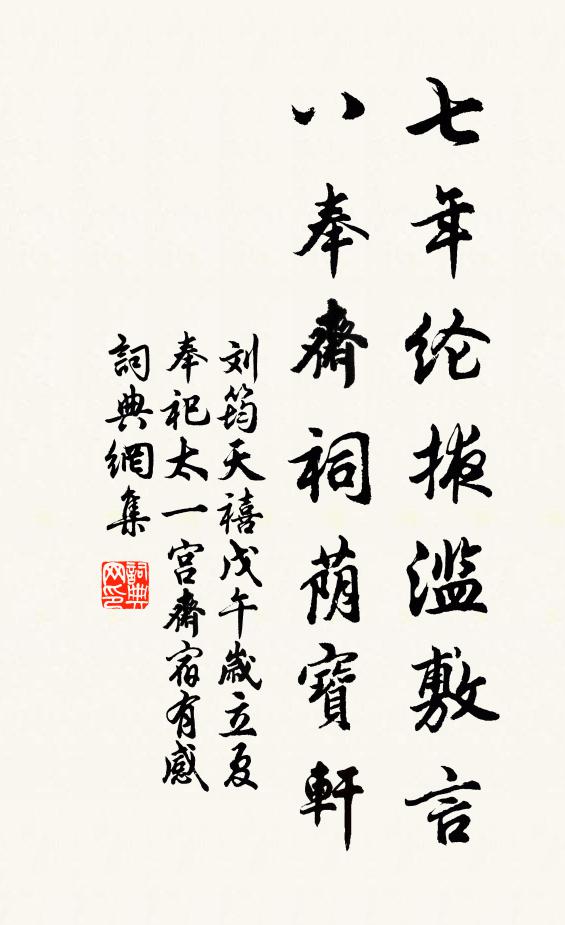 七年纶掖滥敷言
八奉齋祠荫寶軒
刘筠天禧戊午歳立夏
奉祀太一宫齋宿有感
詞典網集
詞典网印